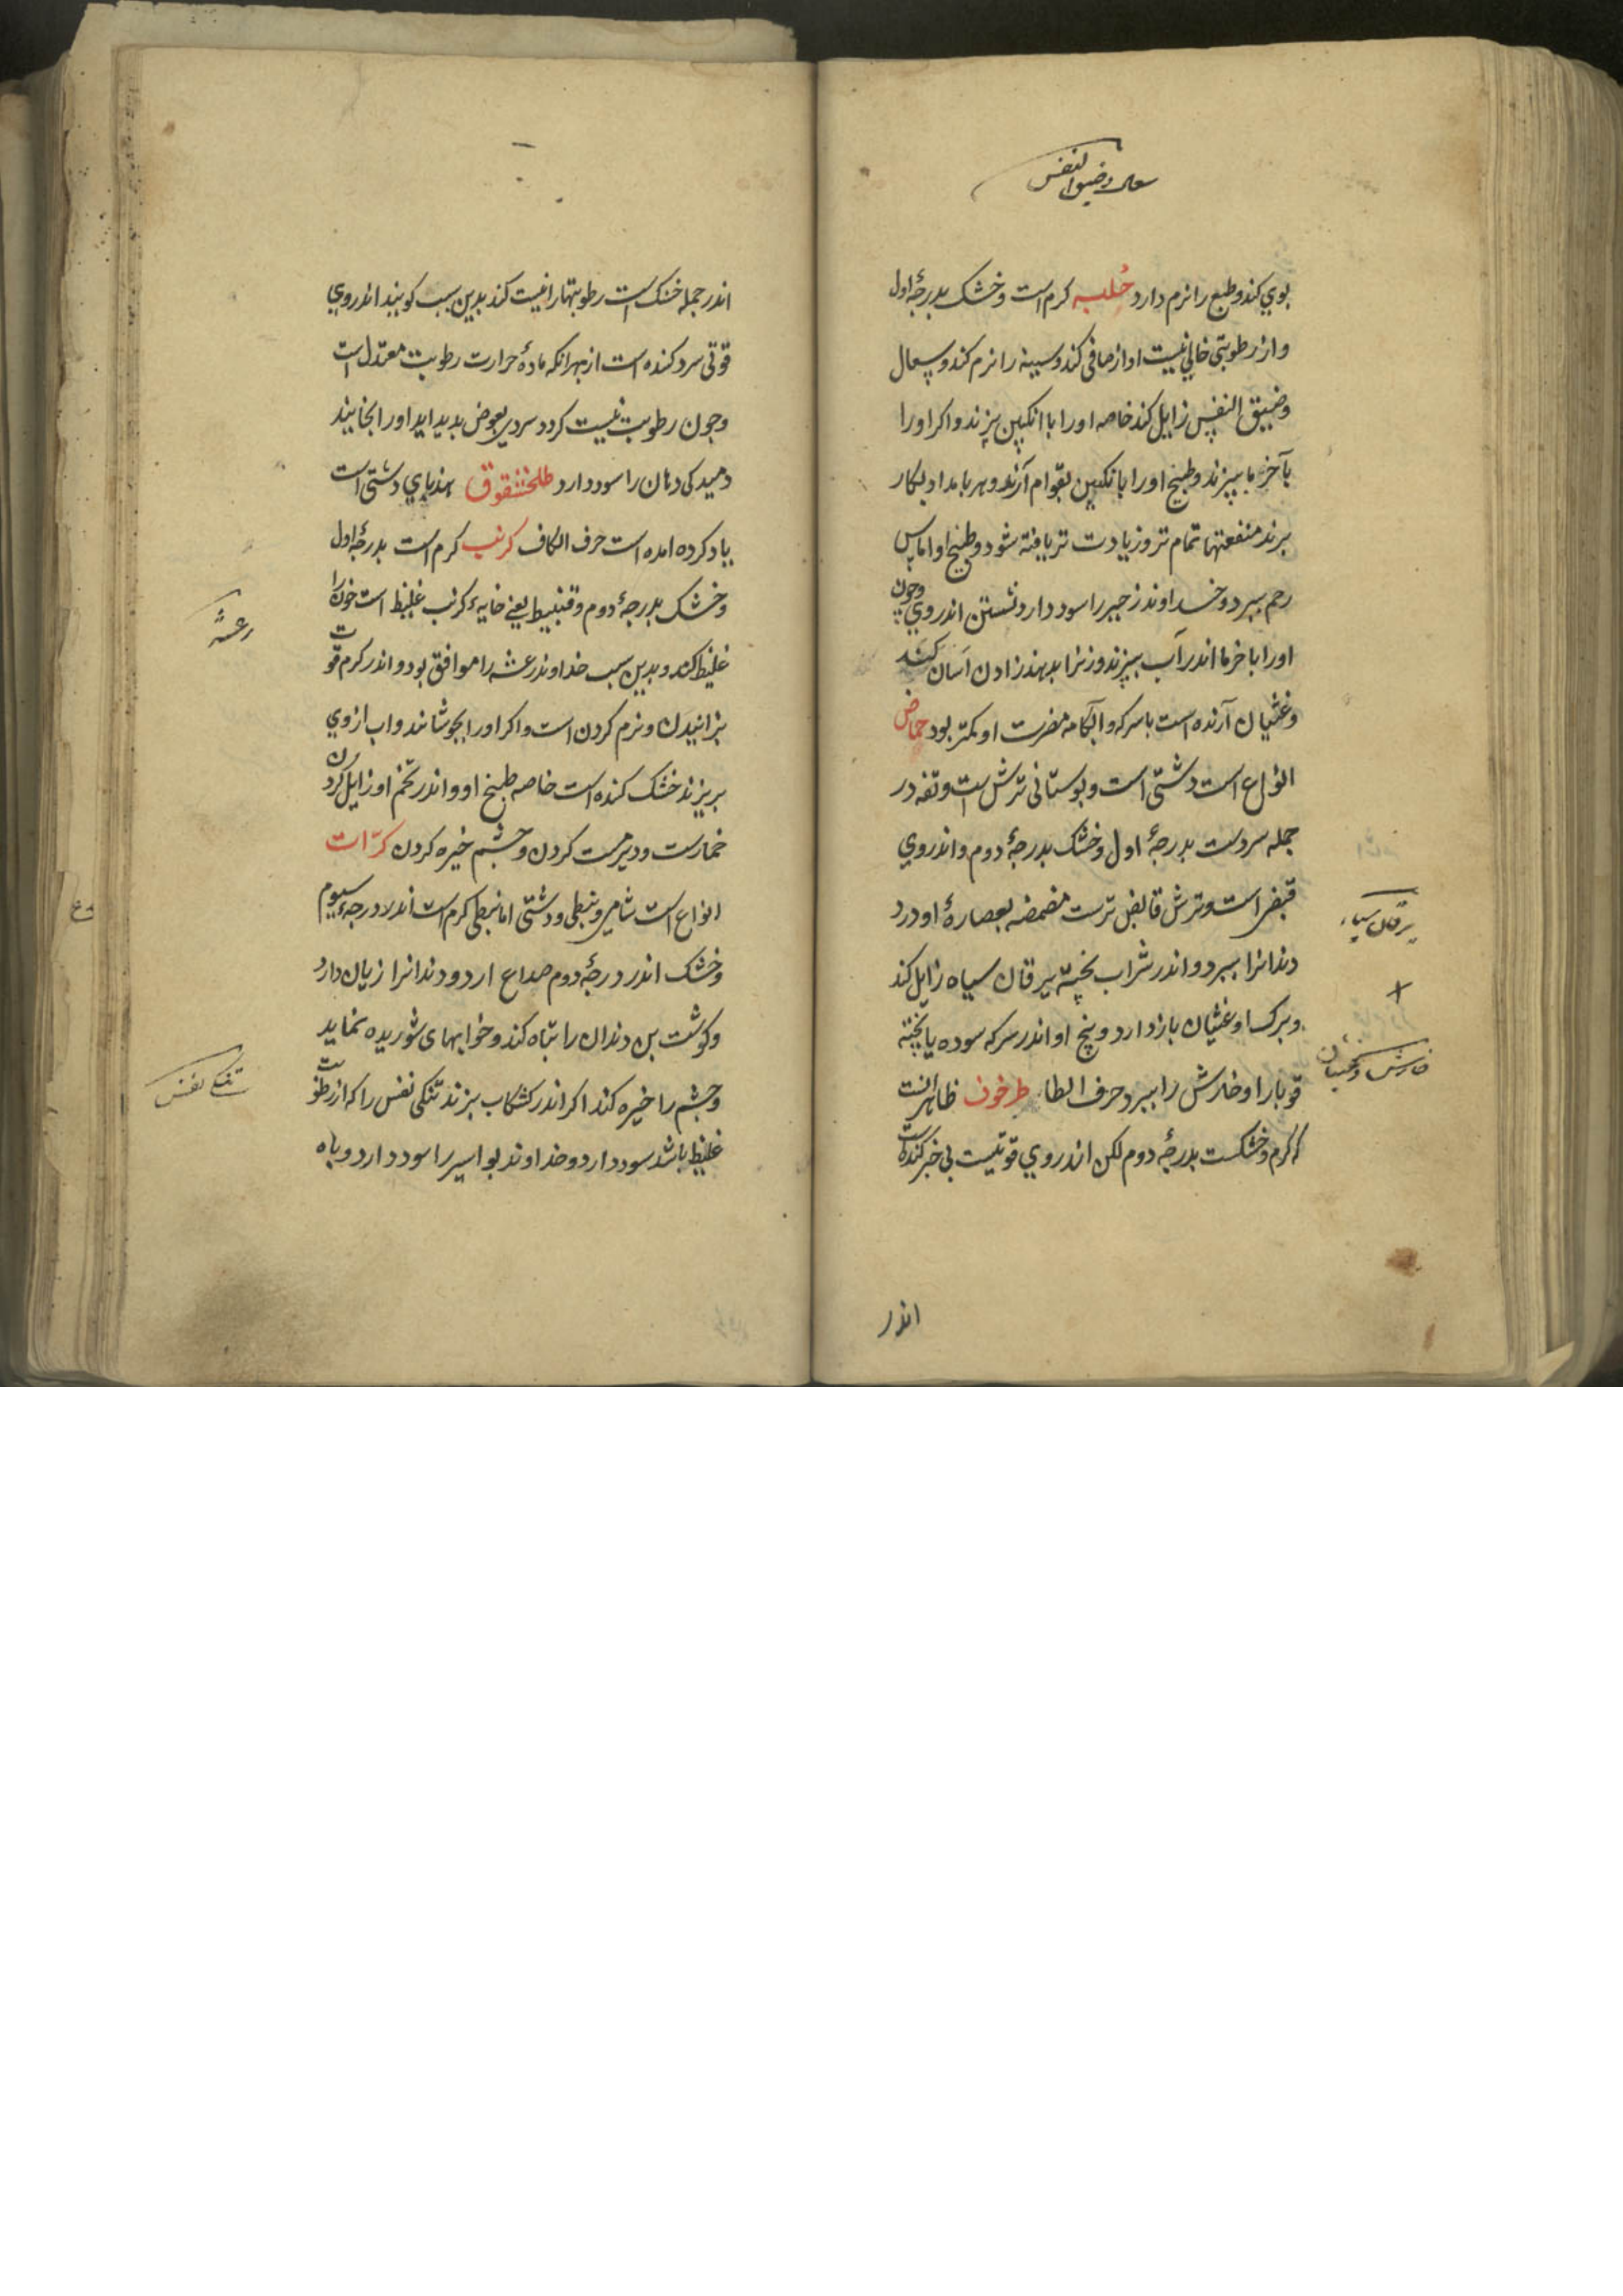 سعال وضیق النفس
بوي کند و طبع را نرم دارد حُلبه کرم است و خشک بدرجۀ اول
و از رطوبتی خالي نیست اواز صافی کند و سینه را نرم کند و سعال
وضیق النفس زایل کند خاصه او را با انکبین بپزند و اکر او را
با خرما بپزند و طبیخ او را بانکبین بقوام آرند و هر بامداد بکار
برند منفعتها تمام تر و زیادت تر یافته شود و طبیخ او اماس
رحم ببرد و خداوند زحیر را سود دارد نشستن اندروي وچون
او را با خرما اندر آب بپزند و زنرا بدهند زادن آسان کند
و غثیان آرنده است با سرکه و آبکامه مضرت او کمتر بود حماض
انواع است دشتی است و بوستانی ترش است و تفه در
جمله سردست بدرجۀ اول و خشک بدرجۀ دوم و اندروي
قبض است و ترش قابض ترست مضمضه بعصارۀ او درد
دندانرا ببرد و اندر شراب پخته یرقان سیاه زایل کند
و برک او غثیان بازدارد و بیخ او اندر سرکه سوده یا پخته
قوبا را و خارش را ببرد حرف الطا طرخون ظاهر انست
که کرم و خشکست بدرجۀ دوم لکن اندروي قوتیست بی خبر کننده است
یرقان سیاه
خارش و غثیان
اندر
اندر جمله خشک است رطوبتها را نیست کند بدین سبب کویند اندروي
قوتی سرد کننده است از بهر انکه مادۀ حرارت رطوبت معتدل است
وچون رطوبت نیست کردد سردي بعوض بدید اید او را بخایند
دمیدکی دهان را سود دارد طلخشقوق هندباي دشتی است
یاد کرده امده است حرف الکاف کرنب کرم است بدرجۀ اول
و خشک بدرجۀ دوم و قنبیط یعنی خایۀ کرنب غلیظ است خون را
غلیظ کند و بدین سبب خداوند رعشه را موافق بود و اندر کرم قوت
بزانیدن و نرم کردن است و اکر او را بجوشانند و اب ازوي
بریزند خشک کننده است خاصه طبیخ او و اندر تخم او زایل کردن
خمارست و دیر مست کردن و چشم خیره کردن کرّاث
انواع است شامی و نبطی و دشتی اما نبطی کرم است اندر درجۀ سیوم
و خشک اندر درجۀ دوم صداع ارد و دندانرا زیان دارد
و کوشت بن دندان را تباه کند و خوابهای شوریده نماید
و چشم را خیره کند اکر اندر کشکاب بزند تنکی نفس را که از رطوبت
غلیظ باشد سود دارد و خداوند بواسیر را سود دارد و باه
رعشه
تنکی نفس